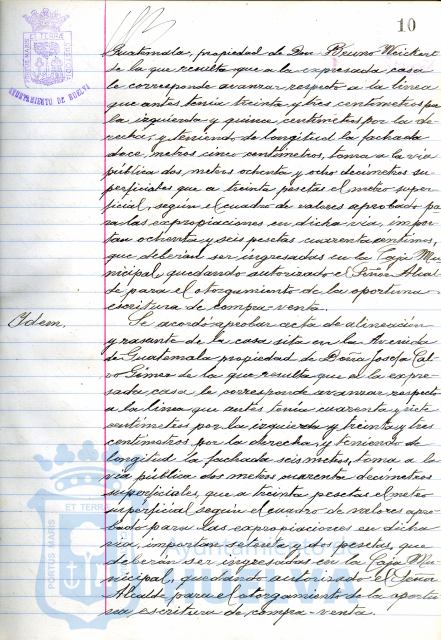 10
PORTUS MARIS ET TERRÆ CUSTODIA
AYUNTAMIENTO DE HUELVA
Guatemala, propiedad de Don Bruno Weickert
de la que resulta que a la expresada casa
le corresponde avanzar respecto a la línea
que antes tenía treinta y tres centímetros por
la izquierda y quince centímetros por la de-
recha; y teniendo de longitud la fachada
doce metros cinco centímetros, toma a la vía
pública dos metros ochenta y ocho decímetros su-
perficiales que a treinta pesetas el metro super-
ficial, según el cuadro de valores aprobado pa-
ra las expropiaciones en dicha vía, impor-
tan ochenta y seis pesetas cuarenta céntimos,
que deberán ser ingresadas en la Caja Mu-
nicipal, quedando autorizado el Señor Alcal-
de para el otorgamiento de la oportuna
escritura de compra-venta.
Idem. Se acordó aprobar acta de alineación
y rasante de la casa sita en la Avenida
de Guatemala propiedad de Doña Josefa Cal-
vo Gómez de la que resulta que a la expre-
sada casa le corresponde avanzar respecto
a la línea que antes tenía cuarenta y siete
centímetros por la izquierda y treinta y tres
centímetros por la derecha, y teniendo de
longitud la fachada seis metros, toma a la
vía pública dos metros cuarenta decímetros
superficiales, que a treinta pesetas el metro
superficial según el cuadro de valores apro-
bado para las expropiaciones en dicha
vía, importan setenta y dos pesetas, que
deberán ser ingresadas en la Caja Mu-
nicipal, quedando autorizado el Señor
Alcalde para el otorgamiento de la oportu-
na escritura de compra-venta.
PORTUS MARIS ET TERRÆ
Ayuntamiento de
HUELVA